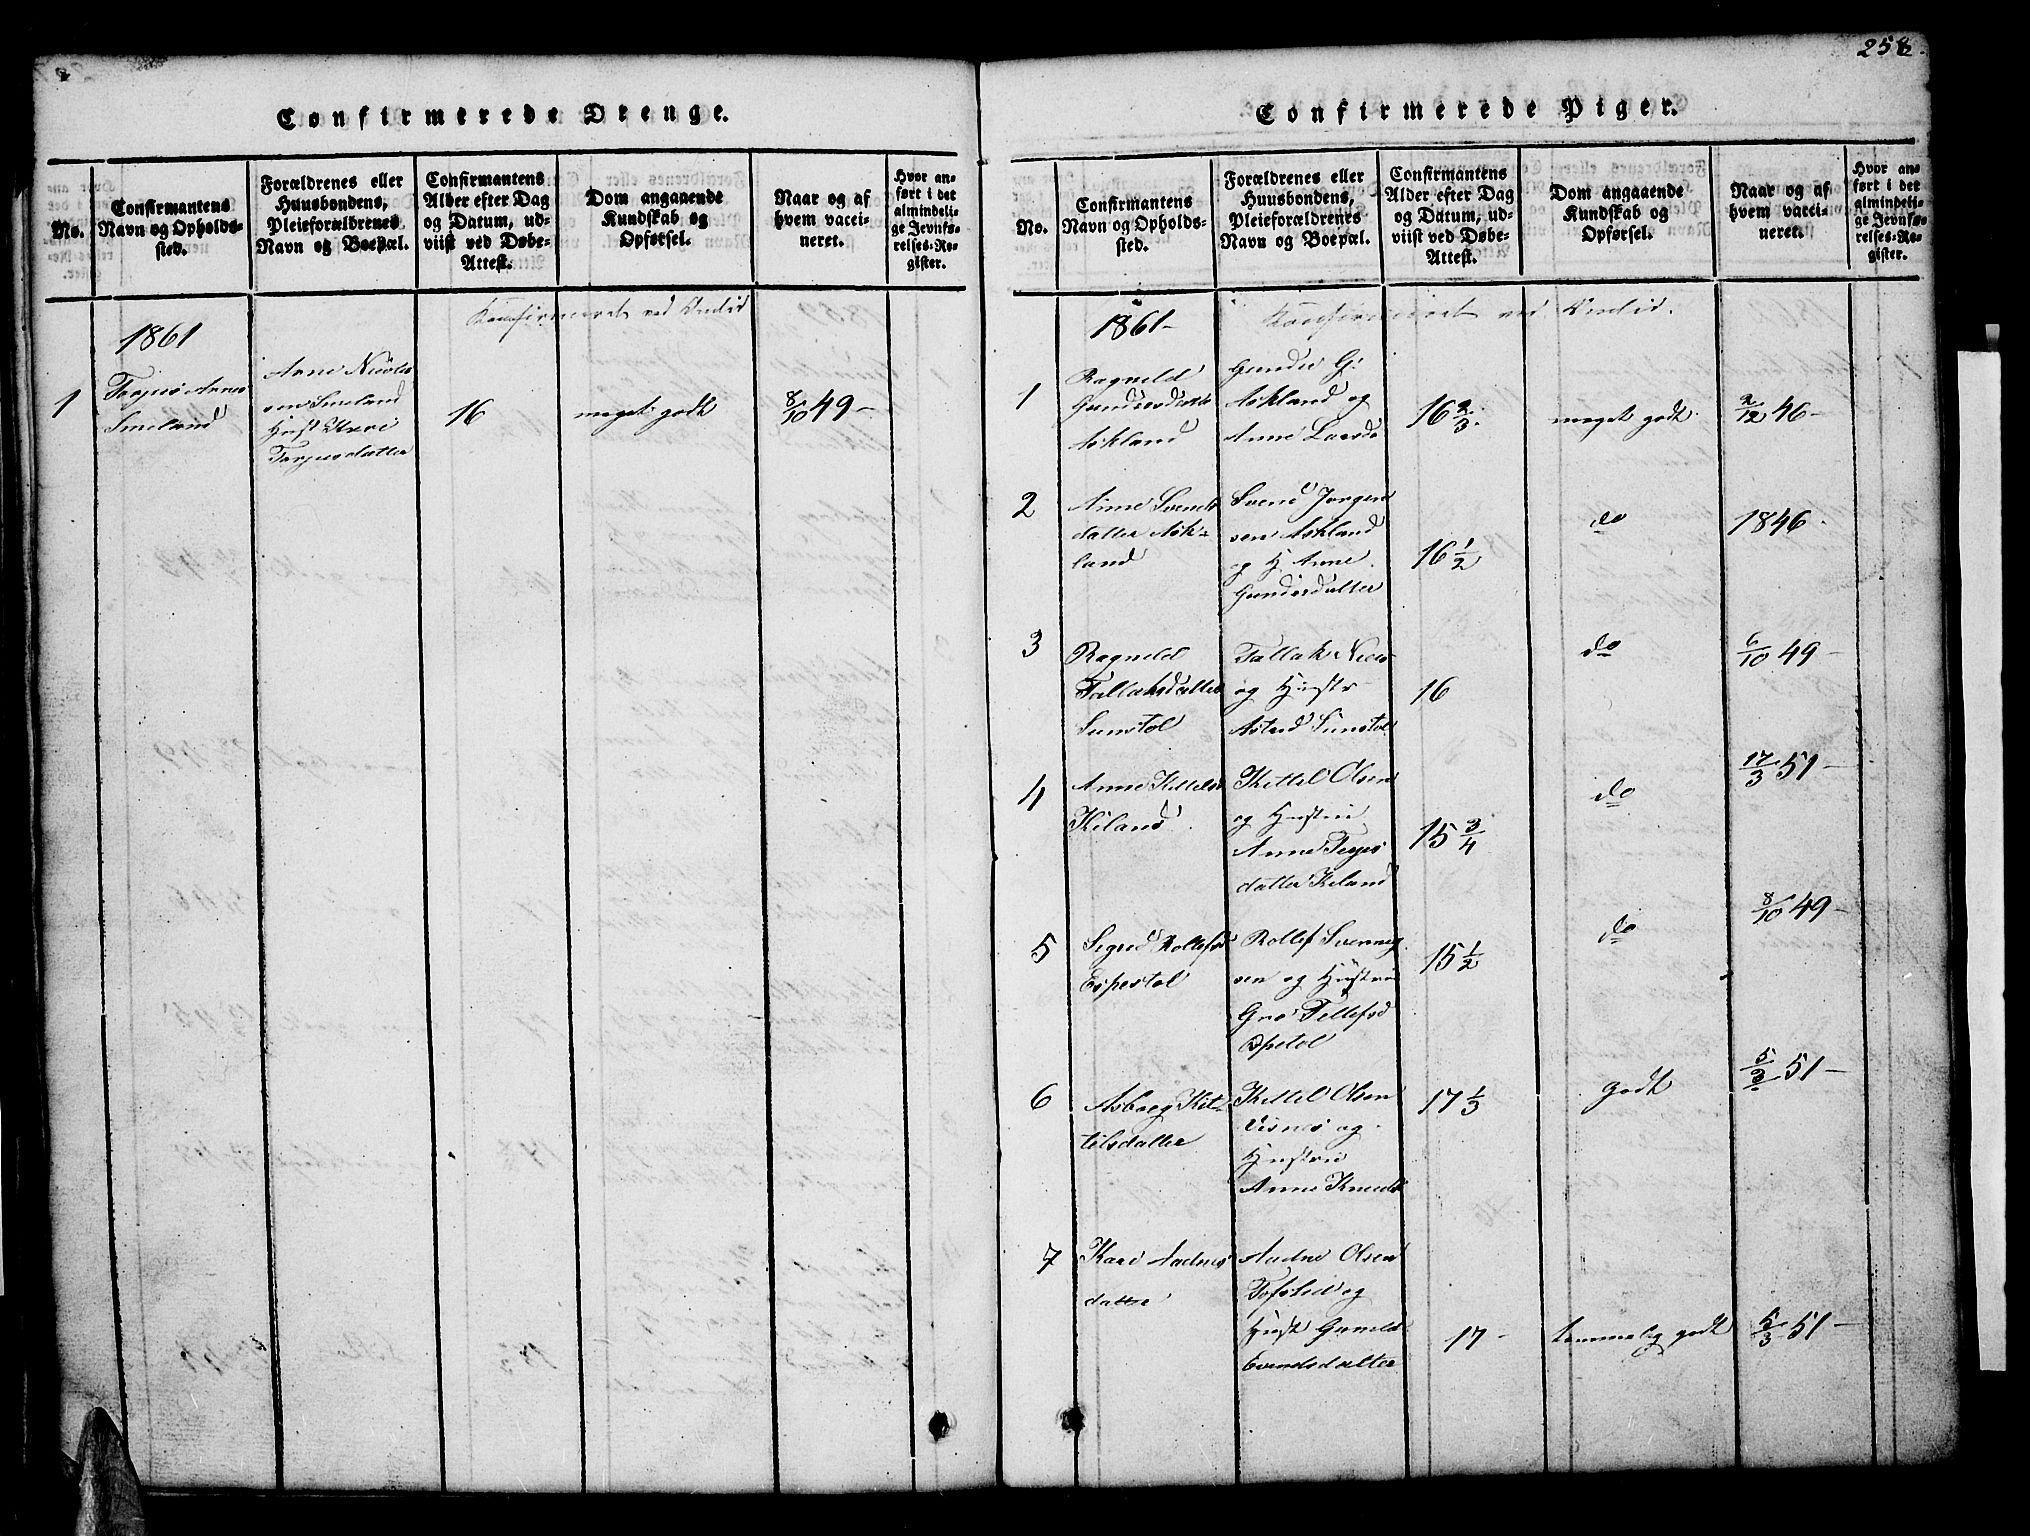 258
Confirmerede Drenge.
No.
Confirmantens
Navn og Opholds-
sted.
Forældrenes eller
Huusbondens,
Pleieforældrenes
Navn og Boepæl.
Confirmantens
Alder efter Dag
og Datum, ud-
viist ved Døbe-
Attest.
Dom angaaende
Kundskab og
Opførsel.
Naar og af
hvem vacci-
neret.
Hvor an-
ført i det
almindeli-
ge Jevnfø-
relses-Re-
gister.
1861
Konfirmeret ved
1
Torjus Arnes
Smeland
Arne Nicolai
sen Smeland
Hust Kari
Torjusdatter
16
meget godt
8/10 49-
Confirmerede Piger.
No.
Confirmantens
Navn og Opholds-
sted.
Forældrenes eller
Huusbondens,
Pleieforældrenes
Navn og Boepæl.
Confirmantens
Alder efter Dag
og Datum, ud-
viist ved Døbe-
Attest.
Dom angaaende
Kundskab og
Opførsel.
Naar og af
hvem vacci-
neret.
Hvor an-
ført i det
almindeli-
ge Jevnfø-
relses-Re-
gister.
1861-
Konfirmeret ved
1
Ragnild
Gundersdatter
Askland
Gunder G.
Askland og
Anne Larsd
16 2/3
meget godt
2/12 46-
2
Anne Svends
datter Ask-
land
Svend Jørgen
sen Askland
og H Anne
Gundersdatter
16 1/2
do
1846.
3
Ragnild
Tallaksdatter
Sunstøl
Tallak Niels
og Hustr
Astrid Sunstøl
16
do
6/10 49-
4
Anne Kettelsd
Kiland
Kettel Olsen
og Hustru
Anne Terjes
datter Kiland
15 3/4
do
17/3 51-
5
Sigrid Rollefsd
Espestøl
Rollef Svennig
sen og Hustru
Gro Tellefsd
Espetøl
15 1/2
do
8/10 49-
6
Asborg Ket-
telsdatter
Kettel Olsen
Vesnes og
Hustru
Anne Knudsd
17 1/3
godt
5/3 51-
7
Kari Aadnes
datter
Aadne Olsen
og
Hust Guneld
Evendsdatter
17-
temmelig godt
5/3 51-